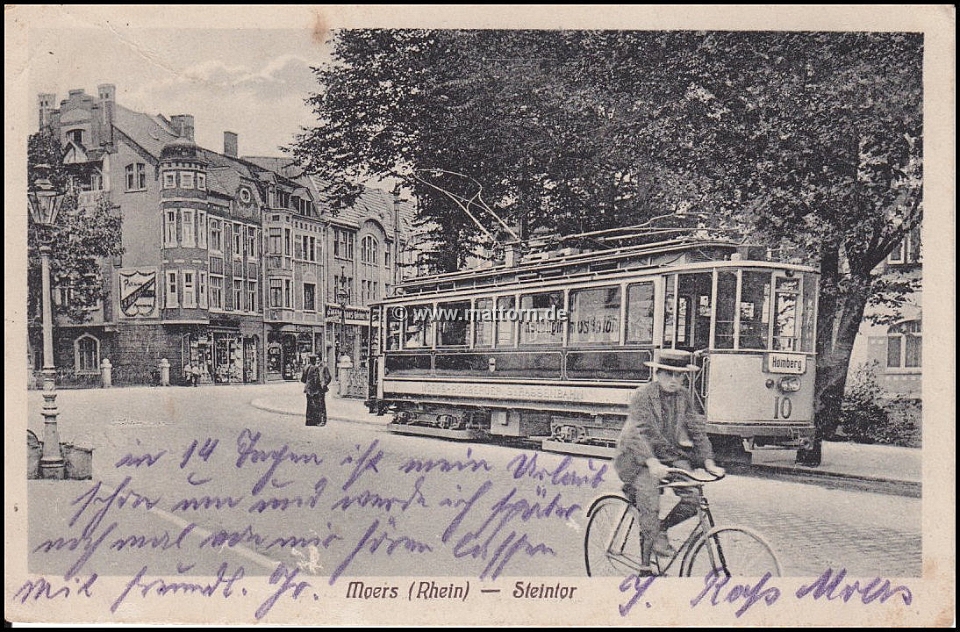 © www.mattorn.de
Homberg
10
in 14 Tagen ist mein Urlaub
schon um und werde ich später
noch mal von mir hören lassen
mit freundl. Gr.
Moers (Rhein) — Steintor
Moers